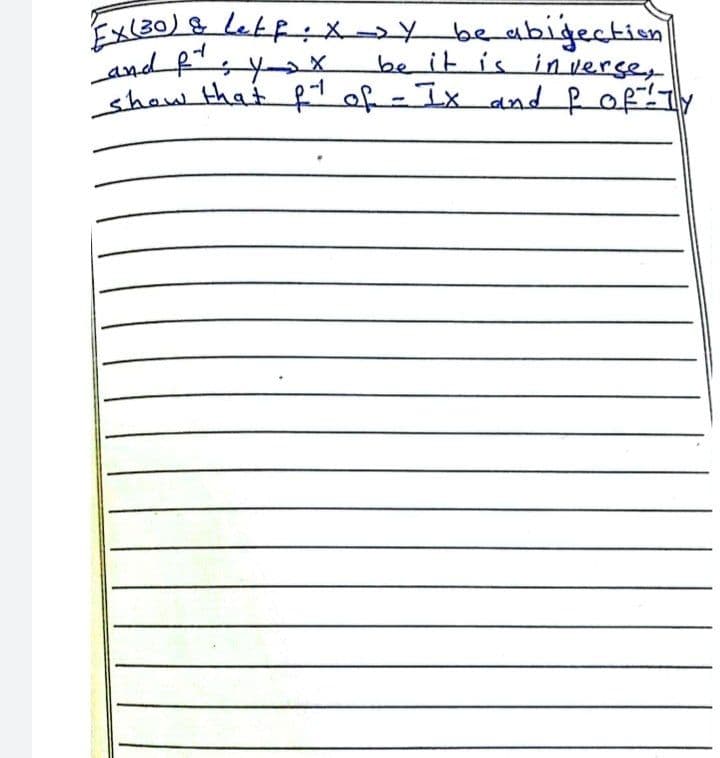 Ex(30) & Let f : X → Y be abigection
and f⁻¹ : y → x be it is inverse,
show that f⁻¹ of = Ix and f of⁻¹ = Iy